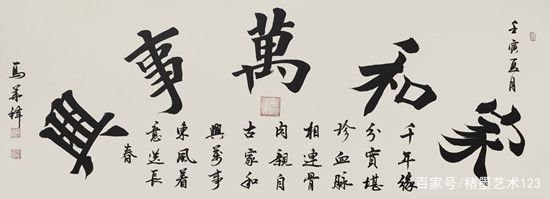 壬寅夏月
家和萬事興
千年緣
分實堪
珍血脈
相連骨
肉親自
古家和
興萬事
東風着
意送長
春
馬
百家号/楮墨艺术123